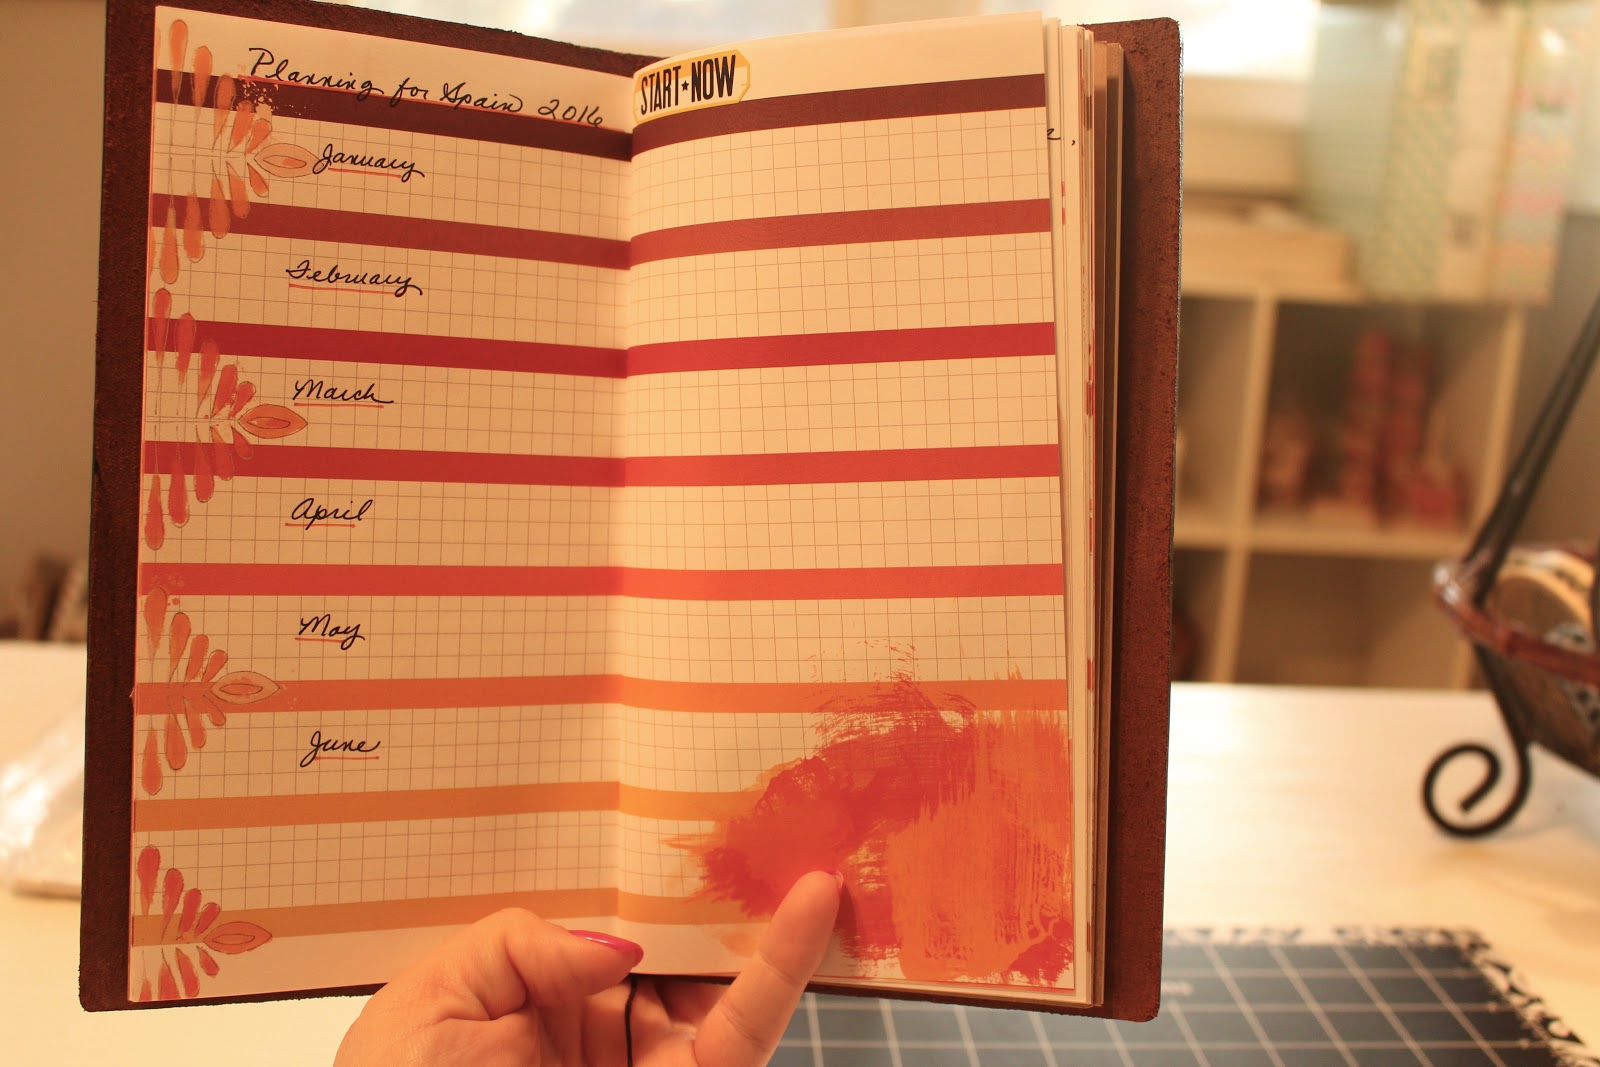 Planning for Spain 2016
START★NOW
January
February
March
April
May
June